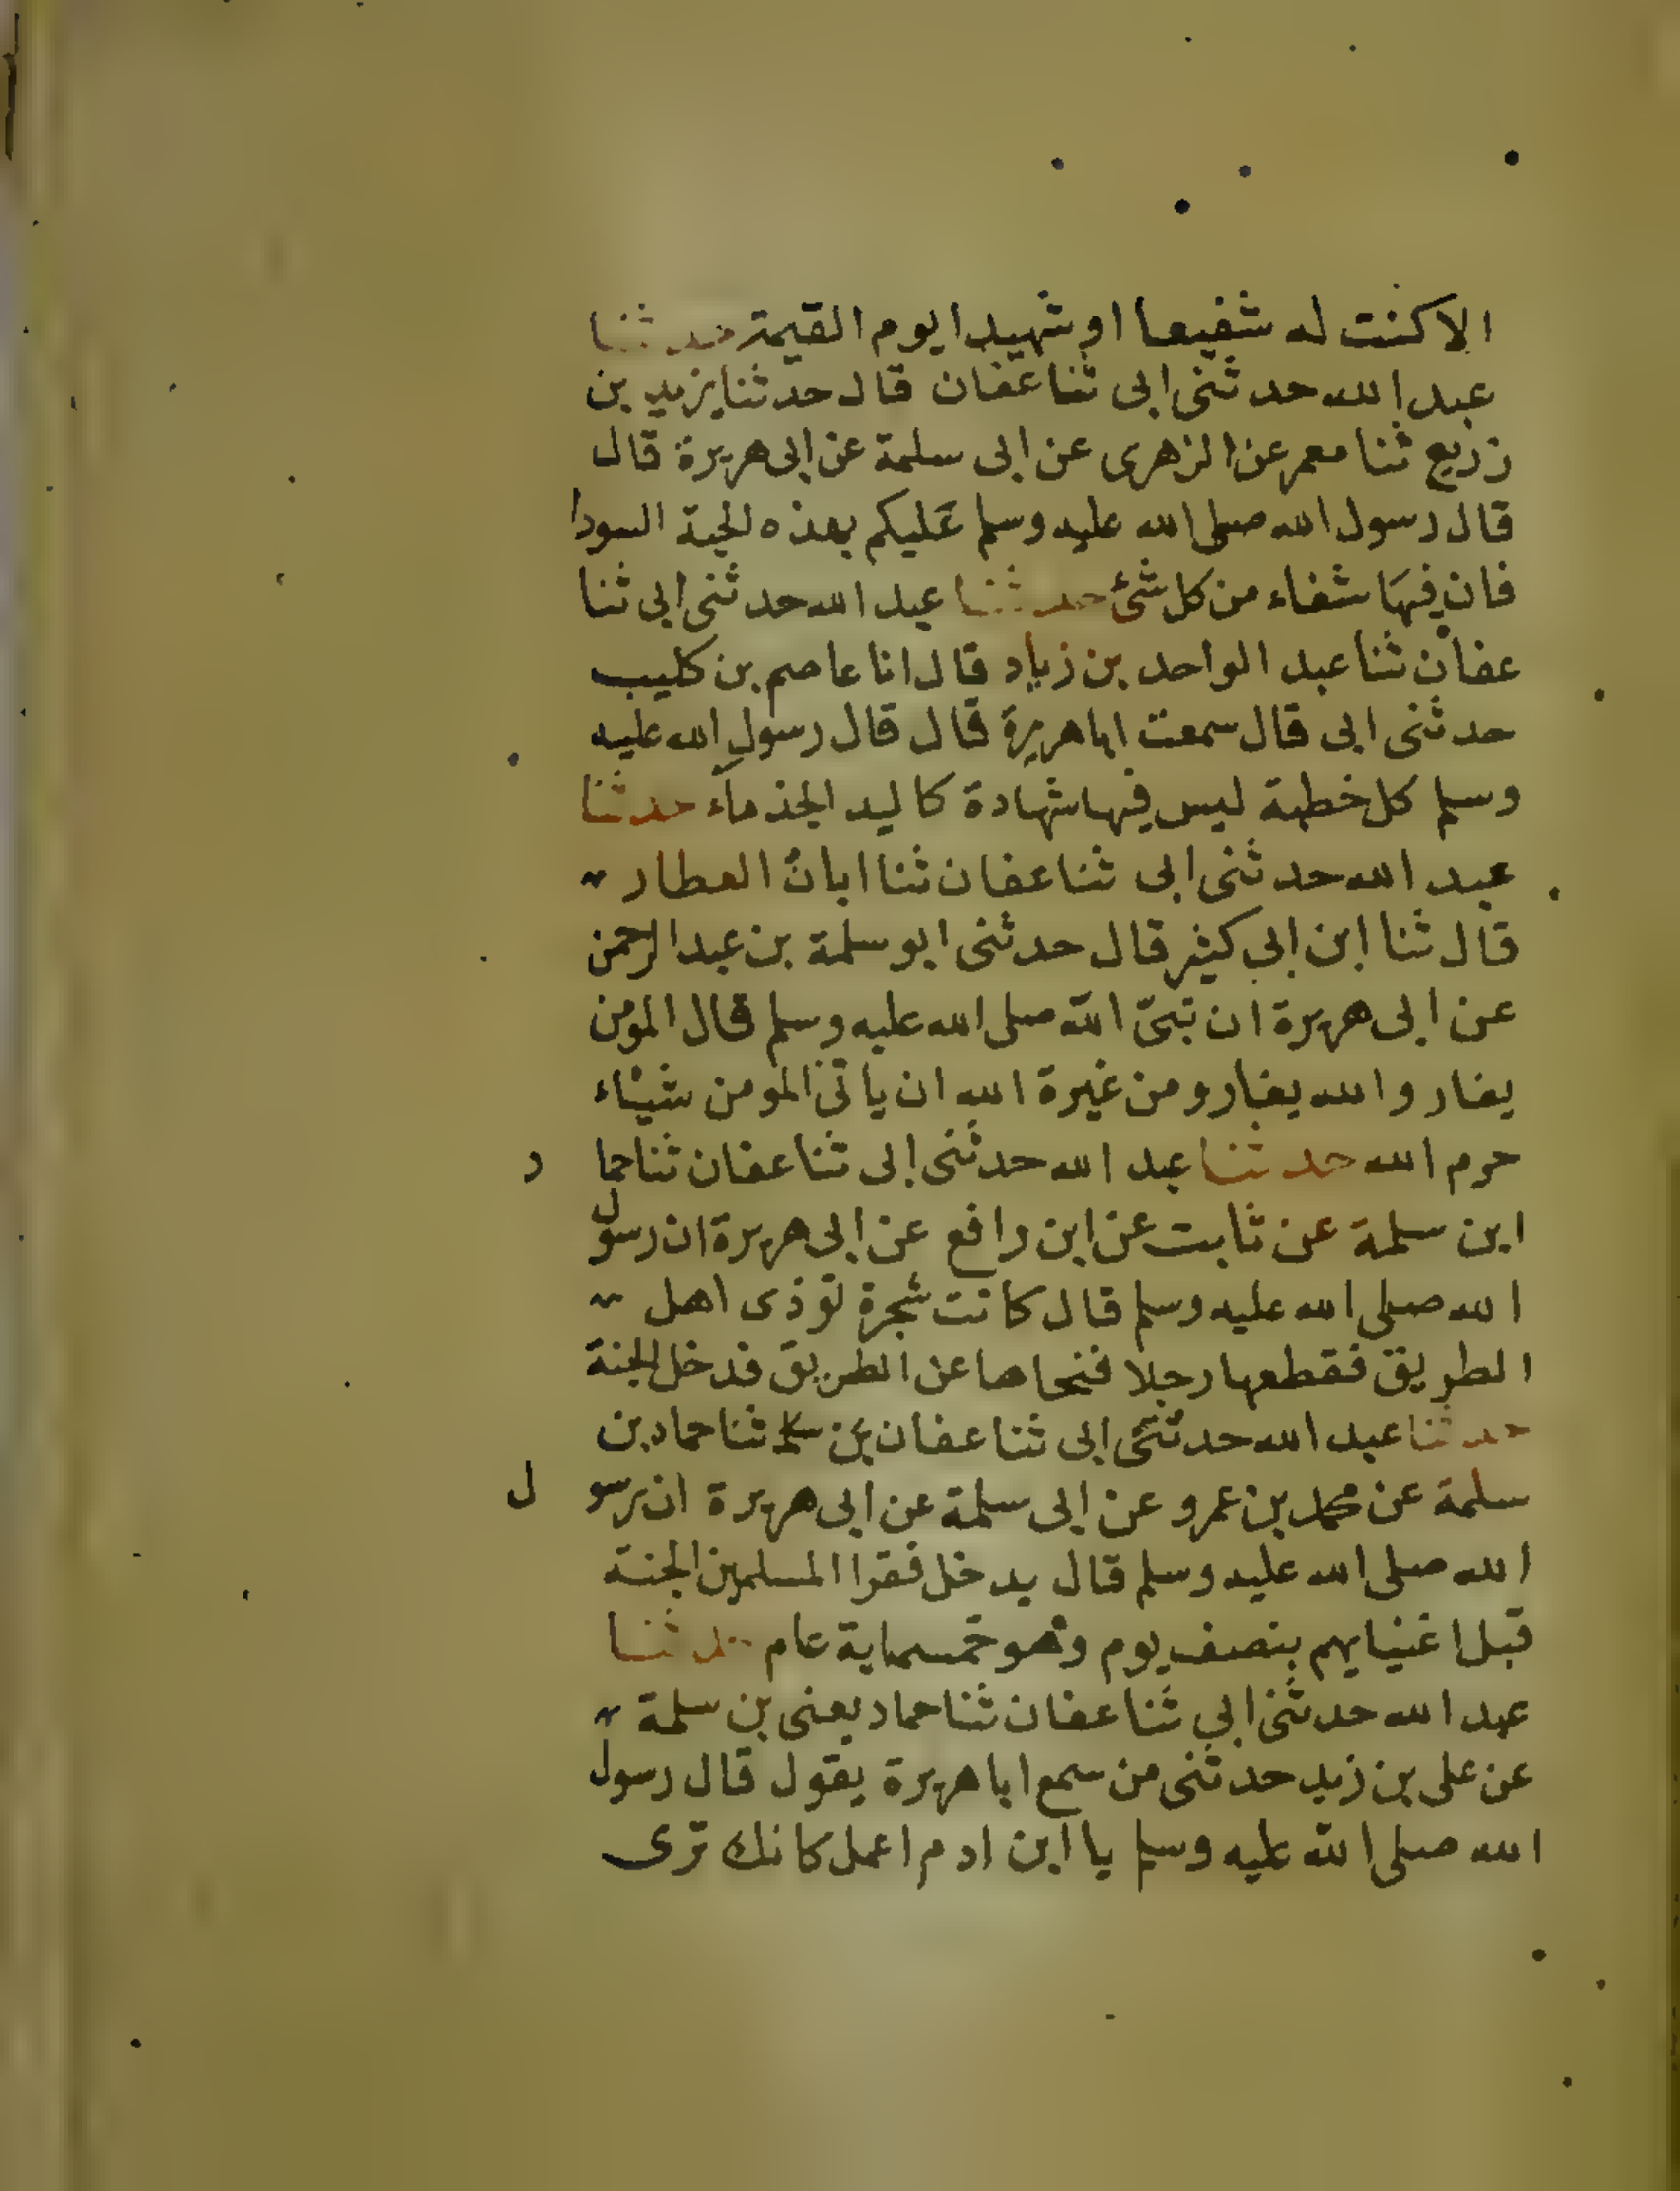 الاكنت له شفيعا او شهيدا يوم القيمة حدثنا
عبد الله حدثنى ابى ثنا عفان قال حدثنا يزيد بن
زريع ثنا معمر عن الزهرى عن ابى سلمة عن ابى هريرة قال
قال رسول الله صلى الله عليه وسلم عليكم بهذه لحبة السودا
فان فيها شفاء من كل شئ حدثنا عبد الله حدثنى ابى ثنا
عفان ثنا عبد الواحد بن زياد قال انا عاصم بن كليب
حدثنى ابى قال سمعت اباهريرة قال قال رسول الله عليه
وسلم كل خطبة ليس فيها شهادة كاليد الجذمآء حدثنا
عبد الله حدثنى ابى ثنا عفان ثنا ابان العطار
قال ثنا ابن ابي كثير قال حدثنى ابو سلمة بن عبد الرحمن
عن ابى هريرة ان نبىّ الله صلى الله عليه وسلم قال المومن
يغار والله يغار ومن غيرة الله ان ياتى المومن شيئاء
حرم الله حدثنا عبد الله حدثنى ابى ثنا عفان ثنا حماد
ابن سلمة عن ثابت عن ابن رافع عن ابى هريرة ان رسول
الله صلى الله عليه وسلم قال كانت شجرة توذى اهل
الطريق فقطعها رجلا فنحاها عن الطريق فدخل الجنة
حدثنا عبد الله حدثنى ابى ثنا عفان بن سلم ثنا حماد بن
سلمة عن محمد بن عمرو عن ابى سلمة عن ابى هريرة ان رسول
الله صلى الله عليه وسلم قال يدخل فقرا المسلمين الجنة
قبل اغنيايهم بنصف يوم وهو خمسماية عام حدثنا
عبد الله حدثنى ابي ثنا عفان ثنا حماد يعنى بن سلمة
عن على بن زيد حدثنى من سمع اباهريرة يقول قال رسول
الله صلى الله عليه وسلم يا ابن ادم اعمل كانك ترى